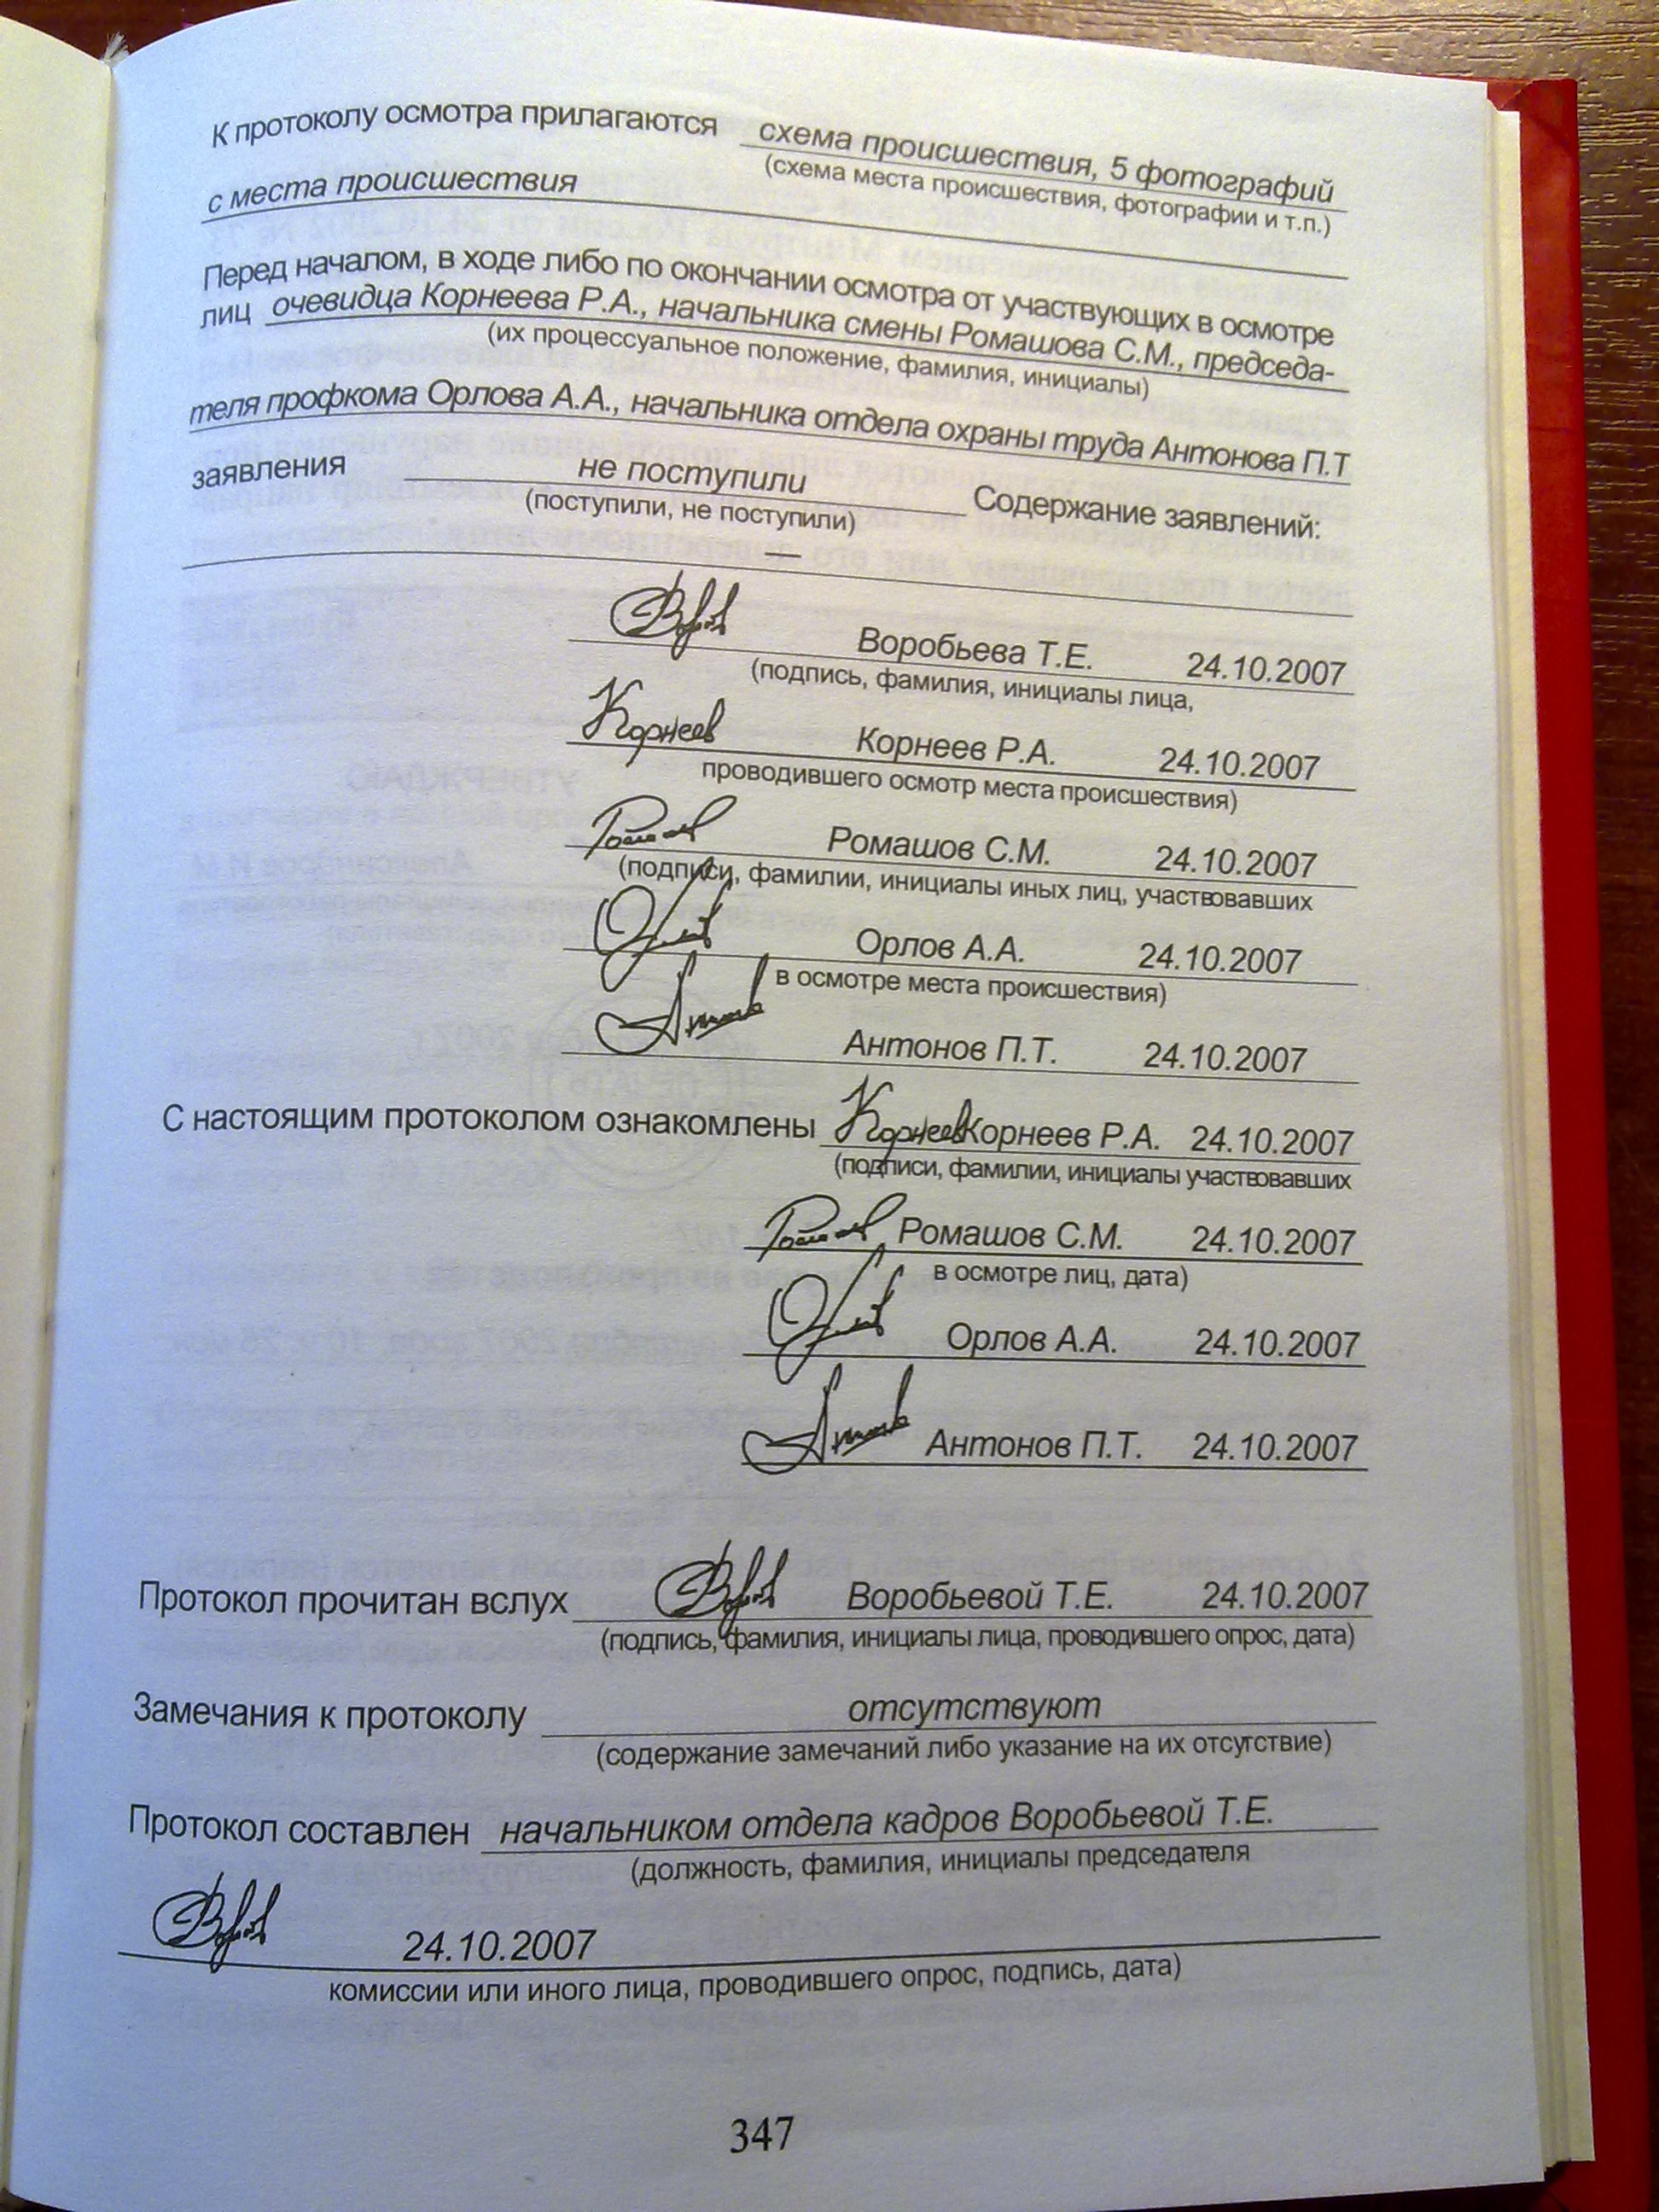 К протоколу осмотра прилагаются схема происшествия, 5 фотографий
(схема места происшествия, фотографии и т.п.)
с места происшествия
Перед началом, в ходе либо по окончании осмотра от участвующих в осмотре
лиц очевидца Корнеева Р.А., начальника смены Ромашова С.М., председа-
(их процессуальное положение, фамилия, инициалы)
теля профкома Орлова А.А., начальника отдела охраны труда Антонова П.Т
заявления не поступили Содержание заявлений:
(поступили, не поступили)
—
Воробьева Т.Е. 24.10.2007
(подпись, фамилия, инициалы лица,
Корнеев Корнеев Р.А. 24.10.2007
проводившего осмотр места происшествия)
Ромашов С.М. 24.10.2007
(подписи, фамилии, инициалы иных лиц, участвовавших
Орлов А.А. 24.10.2007
в осмотре места происшествия)
Антонов П.Т. 24.10.2007
С настоящим протоколом ознакомлены Корнеев Корнеев Р.А. 24.10.2007
(подписи, фамилии, инициалы участвовавших
Ромашов С.М. 24.10.2007
в осмотре лиц, дата)
Орлов А.А. 24.10.2007
Антонов П.Т. 24.10.2007
Протокол прочитан вслух Воробьевой Т.Е. 24.10.2007
(подпись, фамилия, инициалы лица, проводившего опрос, дата)
Замечания к протоколу отсутствуют
(содержание замечаний либо указание на их отсутствие)
Протокол составлен начальником отдела кадров Воробьевой Т.Е.
(должность, фамилия, инициалы председателя
24.10.2007
комиссии или иного лица, проводившего опрос, подпись, дата)
347